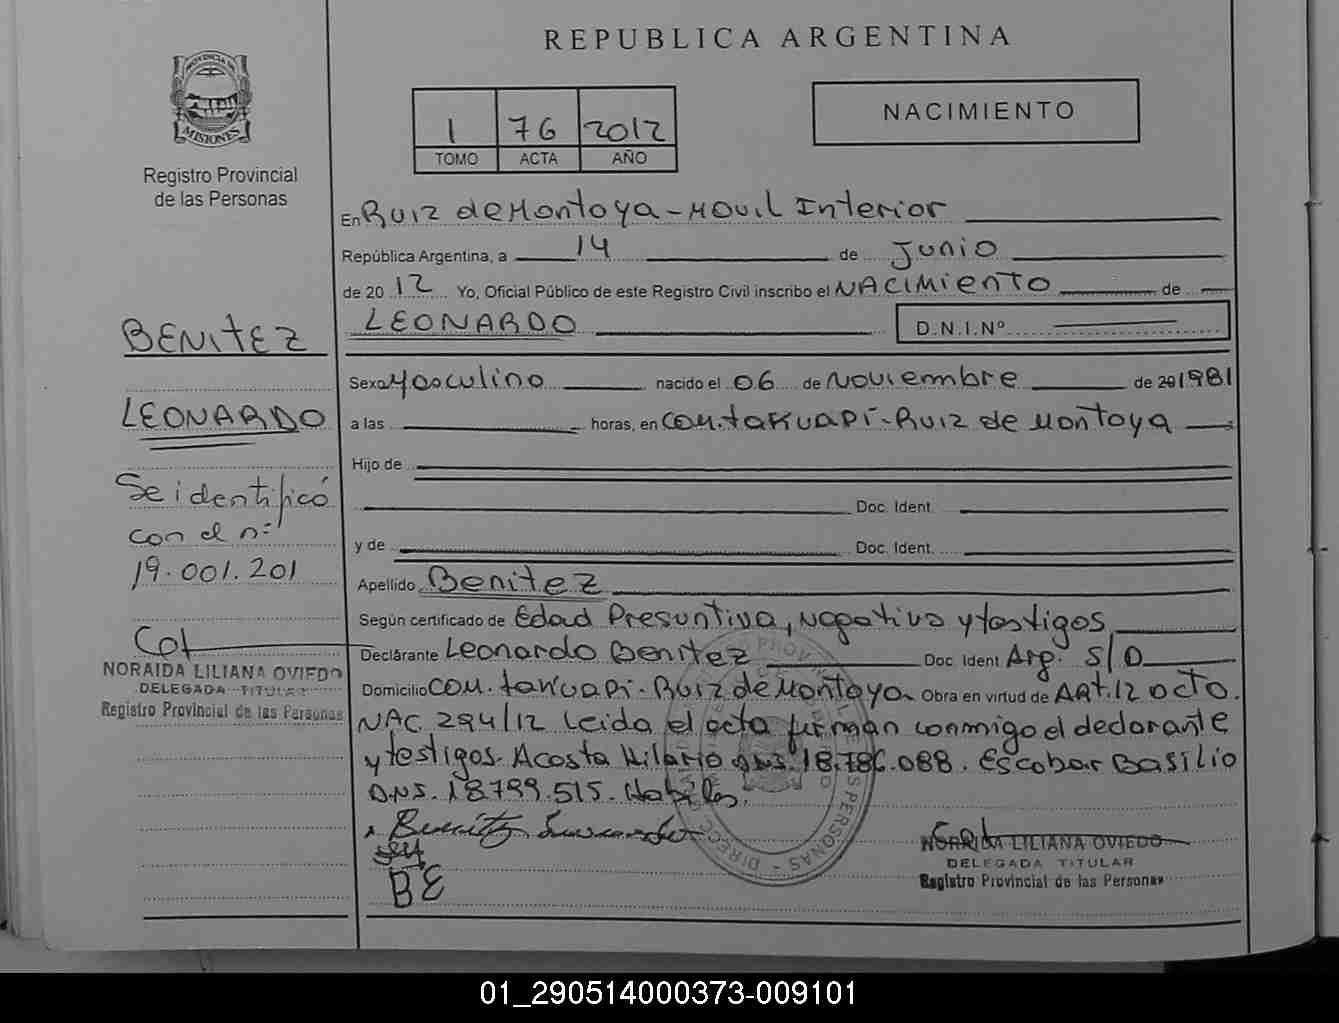 REPUBLICA ARGENTINA
PROVINCIA DE
MISIONES
Registro Provincial
de las Personas
1 76 2012
TOMO ACTA AÑO
NACIMIENTO
En Ruiz de Montoya - Movil Interior
República Argentina, a 14 de Junio
de 2012 Yo, Oficial Público de este Registro Civil inscribo el NACIMIENTO de
LEONARDO D.N.I.Nº
BENITEZ
LEONARDO
Se identificó
con el nº
19.001.201
NORAIDA LILIANA OVIEDO
DELEGADA TITULAR
Registro Provincial de las Personas
Sexo Masculino nacido el 06 de Noviembre de 20 1981
a las horas, en Com. takuapi - Ruiz de Montoya
Hijo de
Doc. Ident.
y de Doc. Ident.
Apellido Benitez
Según certificado de Edad Presuntiva, negativa y testigos
Declarante Leonardo Benitez Doc. Ident Arg. S/D
Domicilio Com. takuapi - Ruiz de Montoya Obra en virtud de ART. 12 acta
NAC 294/12 Leida el acta firman conmigo el declarante
y testigos. Acosta Hilario 18.786.088. Escobar Basilio
18.799.515. Habiles.
Benitez
BE
NORAIDA LILIANA OVIEDO
DELEGADA TITULAR
Registro Provincial de las Personas
01_290514000373-009101